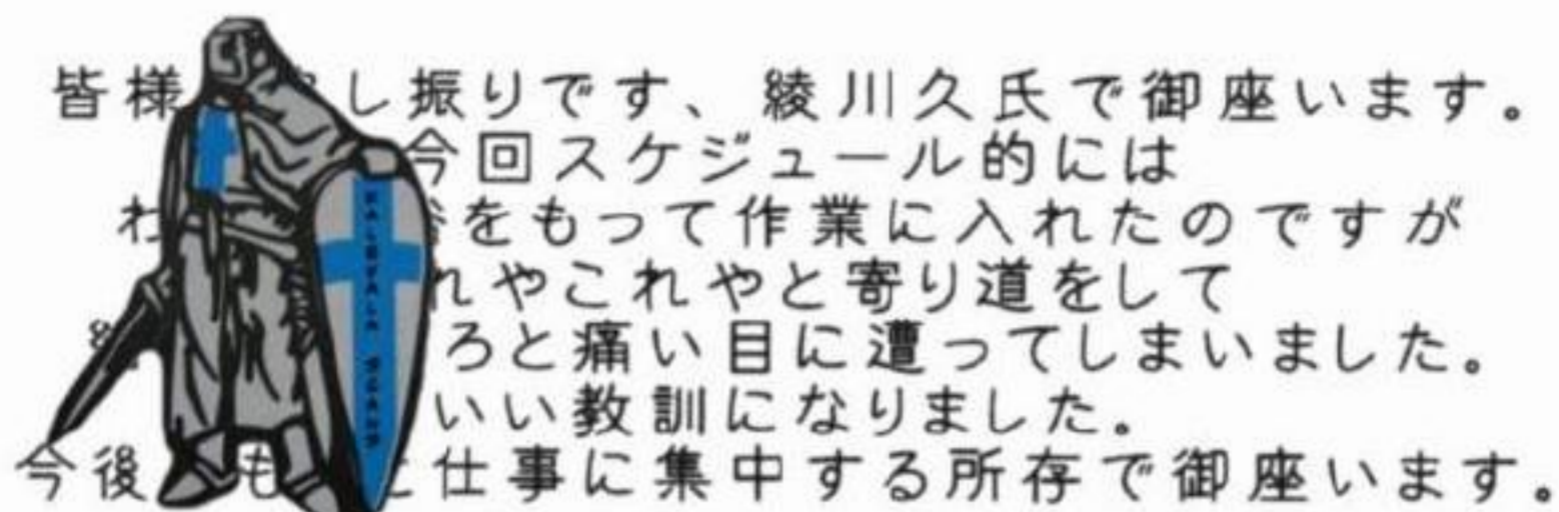 皆様 し振りです、綾川久氏で御座います。
今回スケジュール的には
わ をもって作業に入れたのですが
れやこれやと寄り道をして
ろと痛い目に遭ってしまいました。
いい教訓になりました。
今後 も 仕事に集中する所存で御座います。